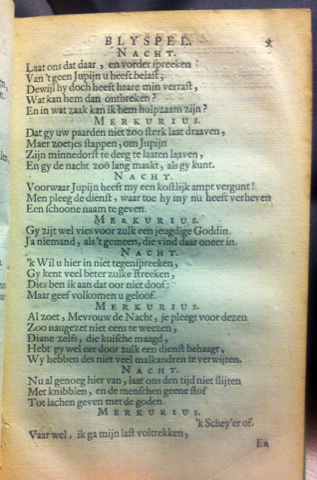 BLYSPEL. 9
NACHT.
Laat ons dat daar, en vorder spreeken!
Van 't geen Jupijn u heeft belast;
Dewijl hy doch heeft haare min verrast,
Wat kan hem dan outbreken?
En in wat zaak kan ik hem hulpzaam zijn?
MERKURIUS.
Dat gy uw paarden niet zoo sterk laat draaven,
Maer zoetjes stappen, om Jupijn
Zijn minnedorst te deeg te laaten laaven,
En gy de nacht zoo lang maakt, als gy kunt.
NACHT.
Voorwaar Jupijn heeft my een kostlijk ampt vergunt!
Men pleeg de dienst, waar toe hy my nu heeft verheven
Een schoone naam te geven.
MERKURIUS.
Gy zijt wel vies voor zulk een jeugdige Goddin.
Ja niemand, als 't gemeen, die vind daar oneer in.
NACHT.
'k Wil u hier in niet tegenspreeken,
Gy kent veel beter zulke streeken,
Dies ben ik aan dat oor niet doof:
Maar geef volkomen u geloof.
MERKURIUS.
Al zoet, Mevrouw de Nacht, je pleegt voor dezen
Zoo naugezet niet eens te weezen,
Diane zelfs, die kuische maagd,
Hebt gy wel eer door zulk een dienst behaagt,
Wy hebben des niet veel malkandren te verwijten.
NACHT.
Nu al genoeg hier van, laat ons den tijd niet slijten
Met knibblen, en de menschen geene stof
Tot lachen geven met de goden.
MERKURIUS.
'k Schey'er of.
Vaar wel, ik ga mijn last voltrekken,
En